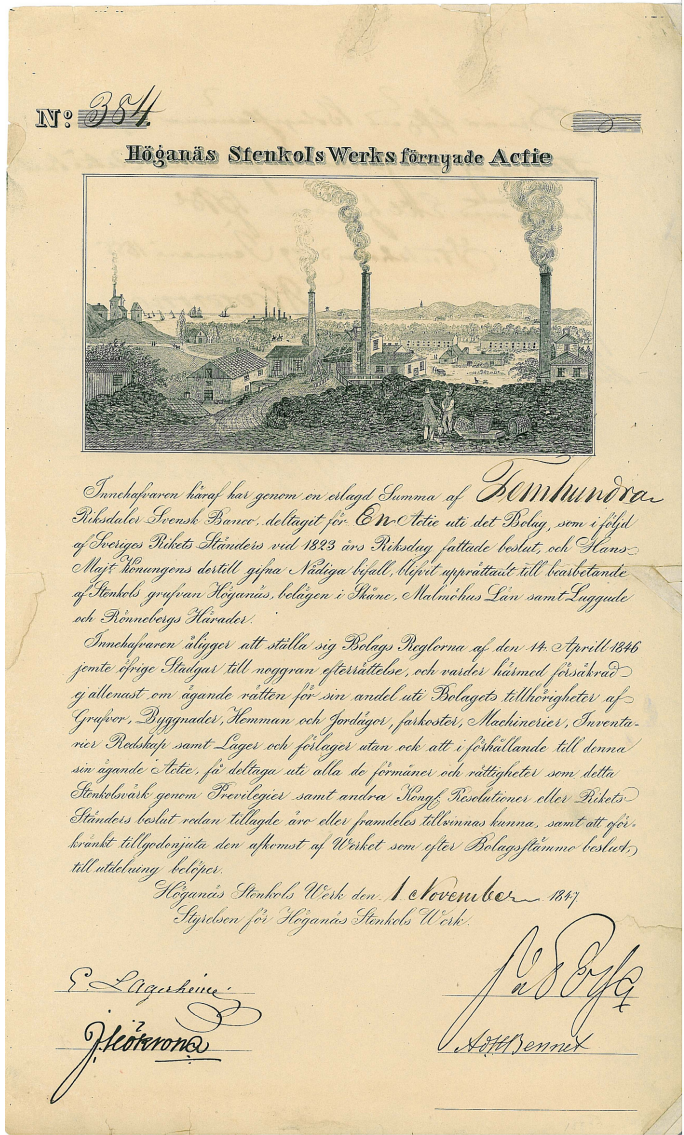 No: 384
Höganäs Stenkols Werks förnyade Actie
Innehafvaren häraf har genom en erlagd Summa af Femhundra
Riksdaler Svensk Banco, deltagit för En Actie uti det Bolag, som i följd
af Sveriges Rikets Ständers vid 1823 års Riksdag fattade beslut, och Hans
Maj:ts Konungens dertill gifna Nådiga bifall, blifvit upprättadt till bearbetande
af Stenkols grufvan Höganäs, belägen i Skåne, Malmöhus Län samt Luggude
och Rönnebergs Härader.
Innehafvaren åligger att ställa sig Bolags Reglorna af den 14. Aprill 1846
jemte öfrige Stadgar till noggran efterrättelse, och varder härmed försäkrad
ej allenast om ägande rätten för sin andel uti Bolagets tillhörigheter af
Grufvor, Byggnader, Hemman och Jordägor, farkoster, Machinerier, Inventa-
rier Redskap samt Lager och förlager utan ock att i förhållande till denna
sin ägande Actie, få deltaga uti alla de förmåner och rättigheter som detta
Stenkolsvärk genom Previlegier samt andra Kongl. Resolutioner eller Rikets
Ständers beslut redan tillagde äro eller framdeles tillvinnas kunna, samt att oför-
kränkt tillgodonjuta den afkomst af Werket som efter Bolagsstämmo beslut,
till utdelning belöper.
Höganäs Stenkols Werk den 1 November 1847
Styrelsen för Höganäs Stenkols Werk.
E. Lagerheim
AdHBennet